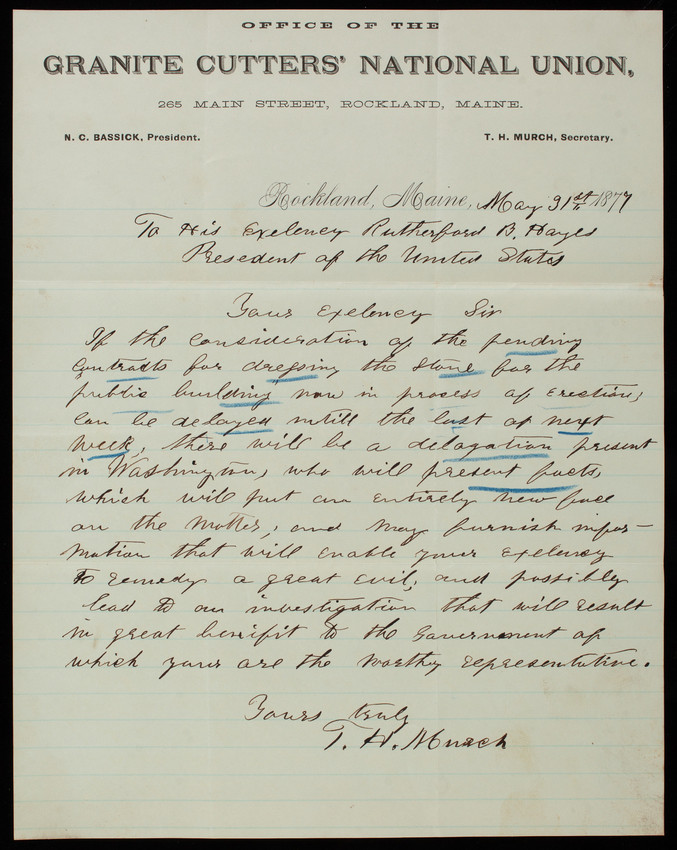 OFFICE OF THE
GRANITE CUTTERS' NATIONAL UNION,
265 MAIN STREET, ROCKLAND, MAINE.
N. C. BASSICK, President. T. H. MURCH, Secretary.
Rockland, Maine, May 31st 1877
To His Exelency Rutherford B. Hayes
Presedent of the United States
Your Exelency Sir
If the consideration of the pending
Contracts for dressing the Stone for the
public building now in process of Erection,
can be delayed untill the last of next
week, there will be a delagation present
in Washington, who will present facts,
which will put an entirely new face
on the Matter, and may furnish infor-
mation that will enable your Exelency
to remedy a great evil, and possibly
lead to an investigation that will result
in great benifit to the Government of
which your are the worthy representative.
Yours truly
T. H. Murch